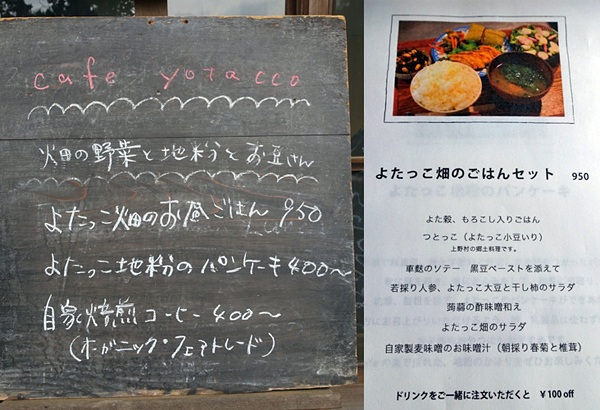 cafe yotacco
畑の野菜と地粉とお豆さん
よたっこ畑のお昼ごはん 950
よたっこ地粉のパンケーキ 400〜
自家焙煎コーヒー 400〜
(オーガニック・フェアトレード)
よたっこ畑のごはんセット 950
よた穀、もろこし入りごはん
つとっこ（よたっこ小豆いり）
上野村の郷土料理です。
車麩のソテー 黒豆ペーストを添えて
若採り人参、よたっこ大豆と干し柿のサラダ
蒟蒻の酢味噌和え
よたっこ畑のサラダ
自家製麦味噌のお味噌汁（朝採り春菊と椎茸）
ドリンクをご一緒に注文いただくと ￥100 off